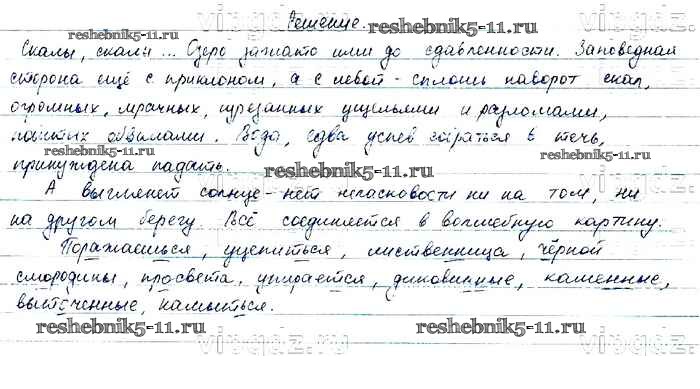 Решение.
reshebnik5-11.ru reshebnik5-11.ru
Скалы, скалы... Озеро зажато ими до сдавленности. Заповедная
сторона ещё с приклоном, а с левой - сплошь наворот скал,
огромных, мрачных, изрезанных ущельями и разломами,
reshebnik5-11.ru
обвалами. Вода, едва успев собраться в течь,
reshebnik5-11.ru reshebnik5-11.ru
принуждена падать.
reshebnik5-11.ru
А выглянет солнце - нет неласковости ни на том, ни
на другом берегу. Всё соединяется в волшебную картину.
Поражаешься, уцепиться, лиственница, чёрной
смородины, просвета, упирается, диковинные, каменные,
выточенные, намыться.
reshebnik5-11.ru reshebnik5-11.ru